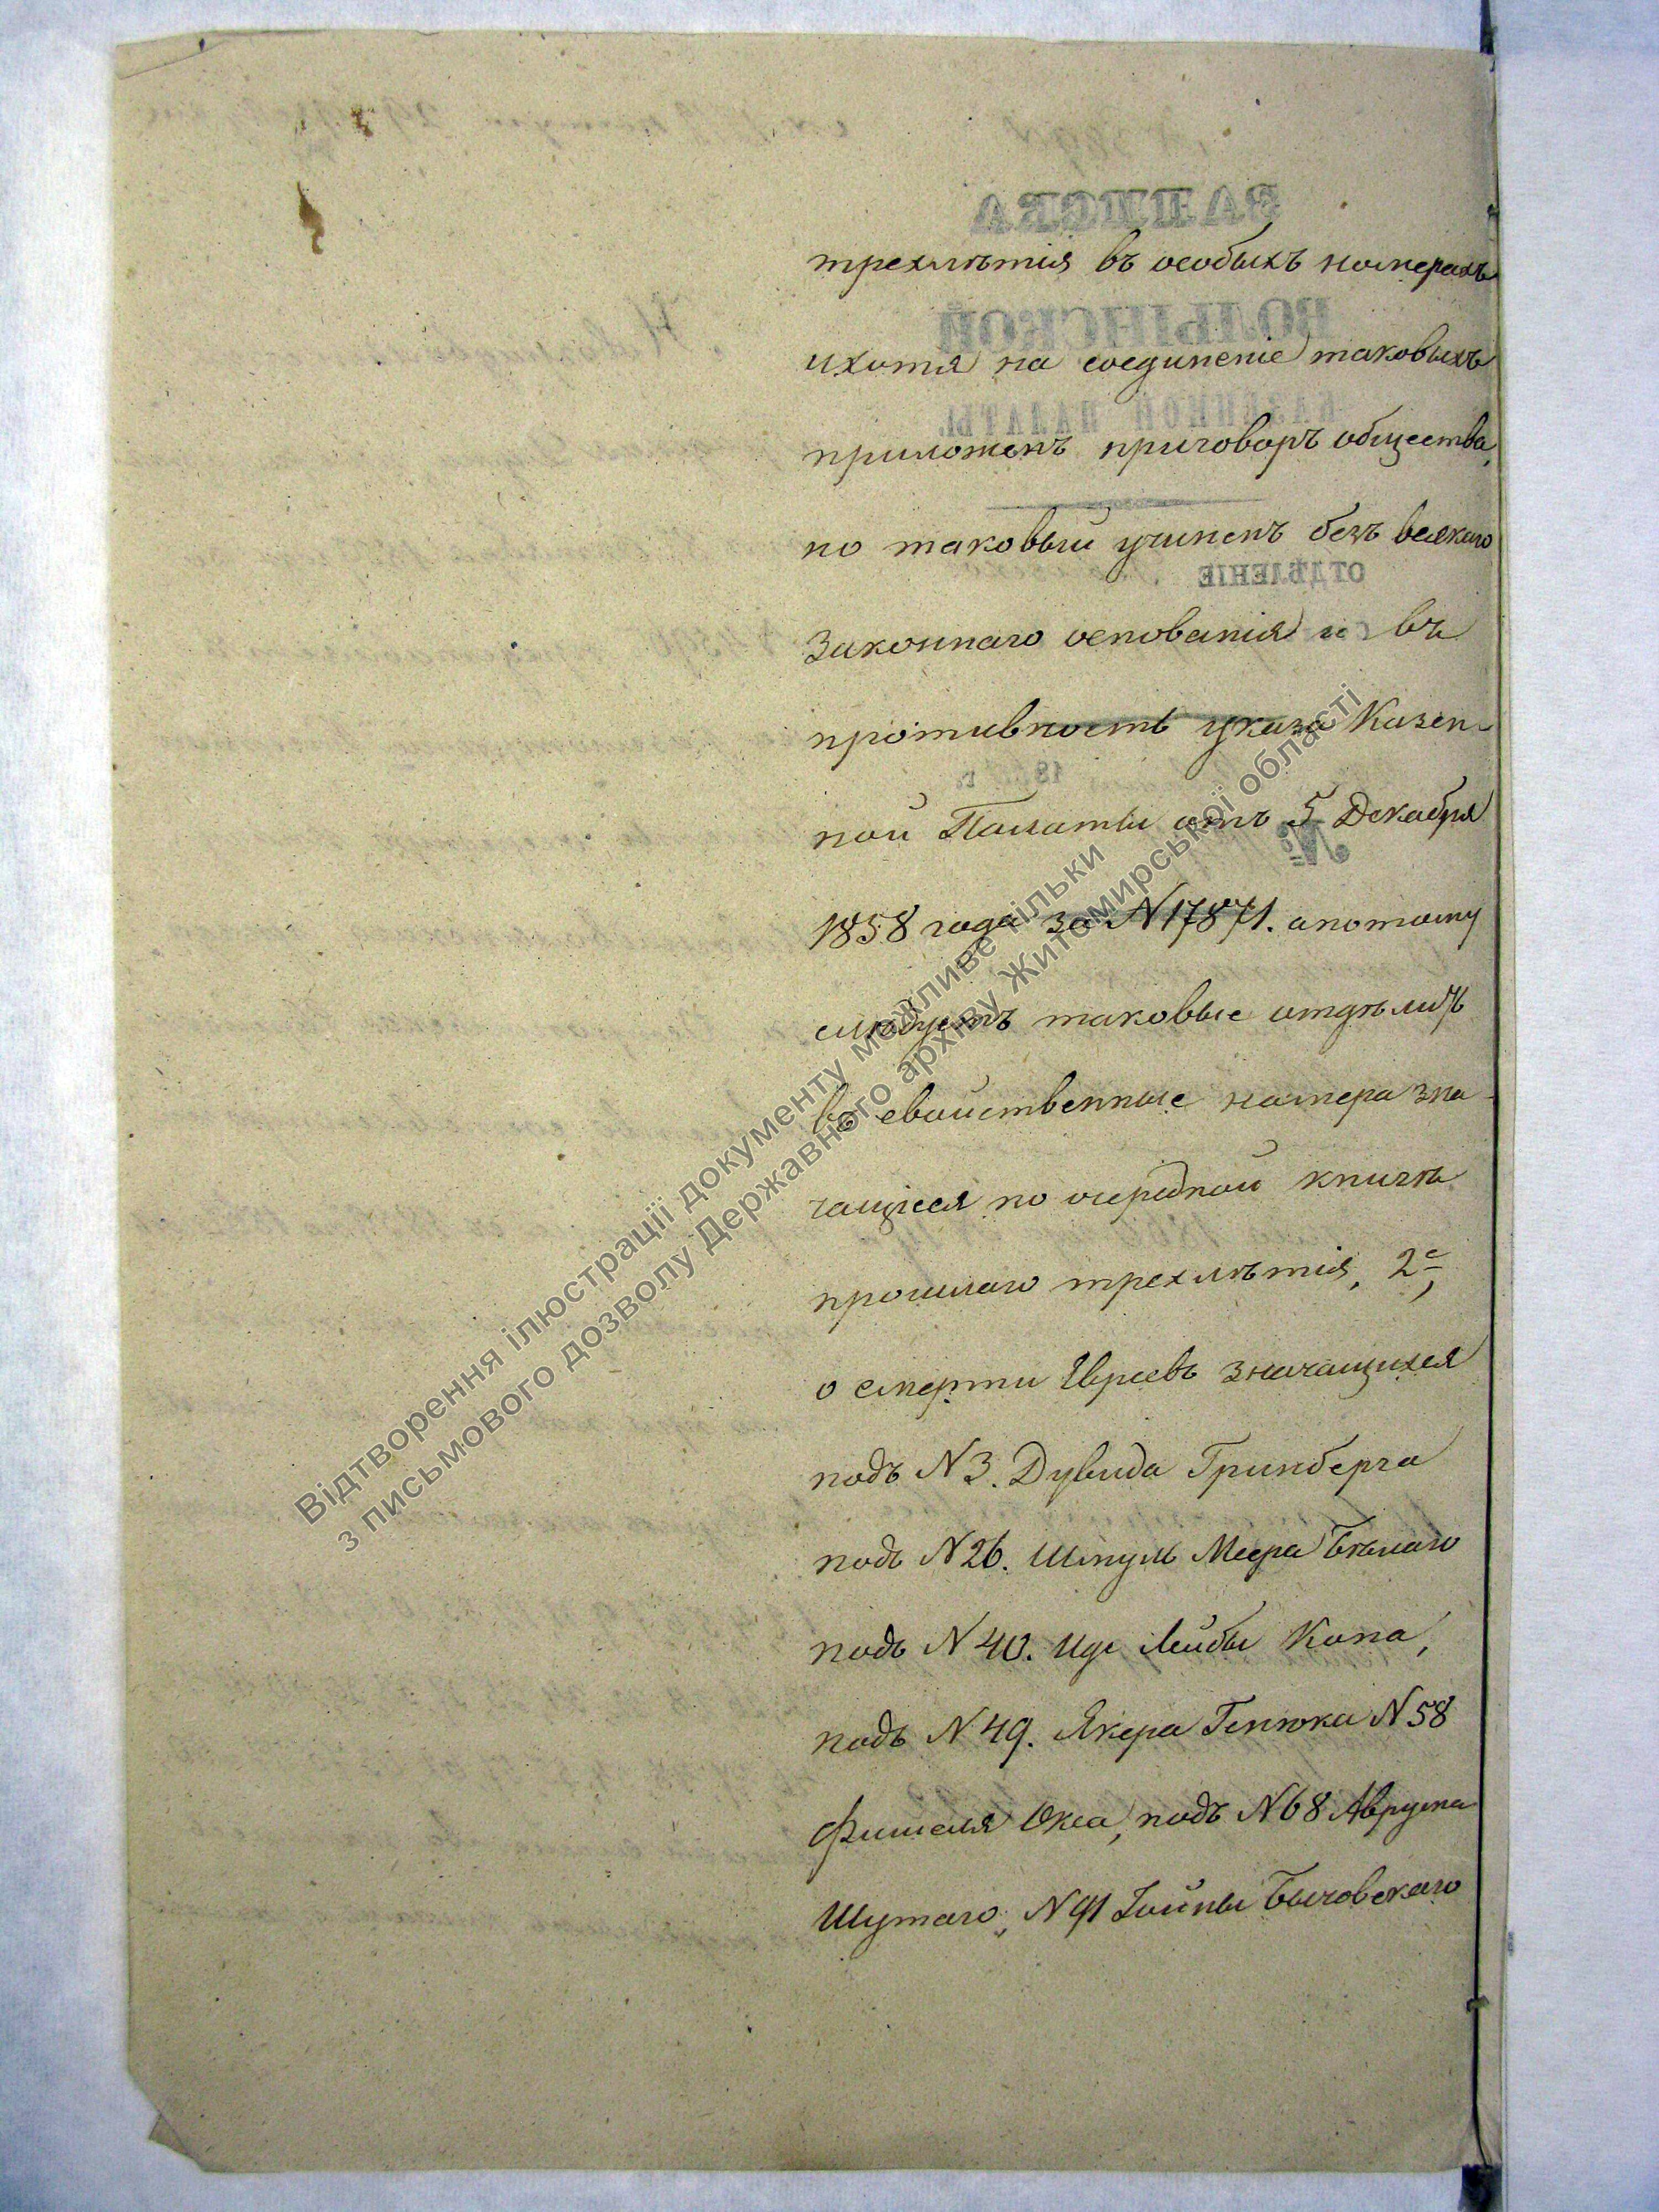 трехлѣтія въ особыхъ номерахъ
ихотя на соединеніе таковыхъ
приложенъ приговоръ общества,
но таковый учиненъ безъ всякаго
законнаго основанія и въ
противность указа Казен-
ной Палаты отъ 5 Декабря
1858 года за N 17871. апотому
слѣдуетъ таковые отдѣлить
въ свойственные номера зна-
чащіеся по очередной книгѣ
прошлаго трехлѣтія, 2е,
о смерти Евреевъ значащихся
подъ N 3. Дувида Гринберга
подъ N 26. Шмуль Меера Бѣлаго
подъ N 40. Иде Лейбы Кона,
подъ N 49. Якера Генюка N 58
Фишеля Окса, подъ N 68 Аврума
Шутаго, N 91 Іойны Быховскаго
ЗАПИСКА
ВОЛЫНСКОЙ
КАЗЕННОЙ ПАЛАТЫ.
ОТДѢЛЕНІЕ
18 г.
№
Відтворення ілюстрації документу можливе тільки
з письмового дозволу Державного архіву Житомирської області